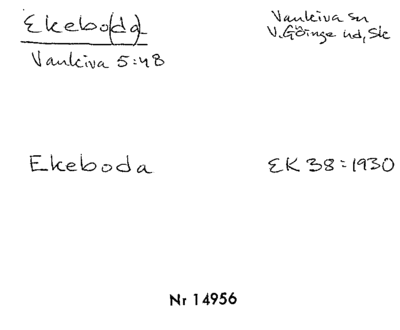 Ekebo(da)
Vankiva sn
V. Göinge hd, Sk
Vankiva 5:48
Ekeboda
EK 38 = 1930
Nr 14956